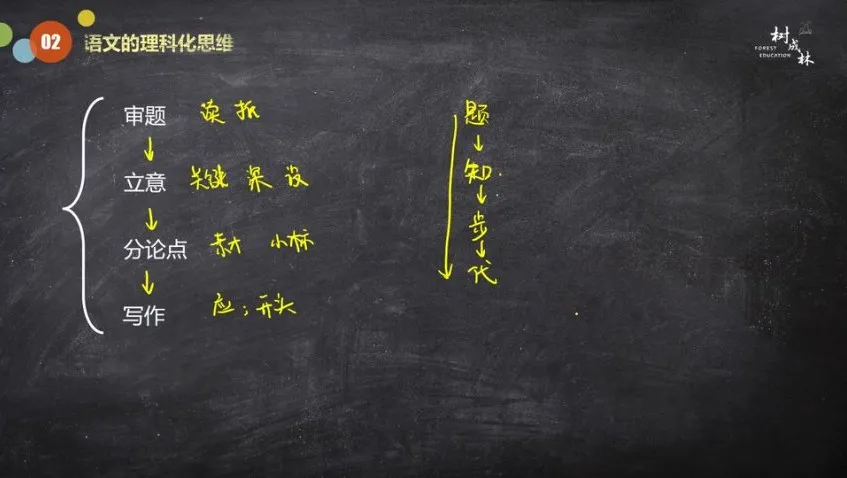 02 语文的理科化思维
树成林
FOREST
EDUCATION
审题 读 拆
↓
立意 关键 深 设
↓
分论点 小标
↓
写作 应；开头
题
↓
知
↓
步
↓
代